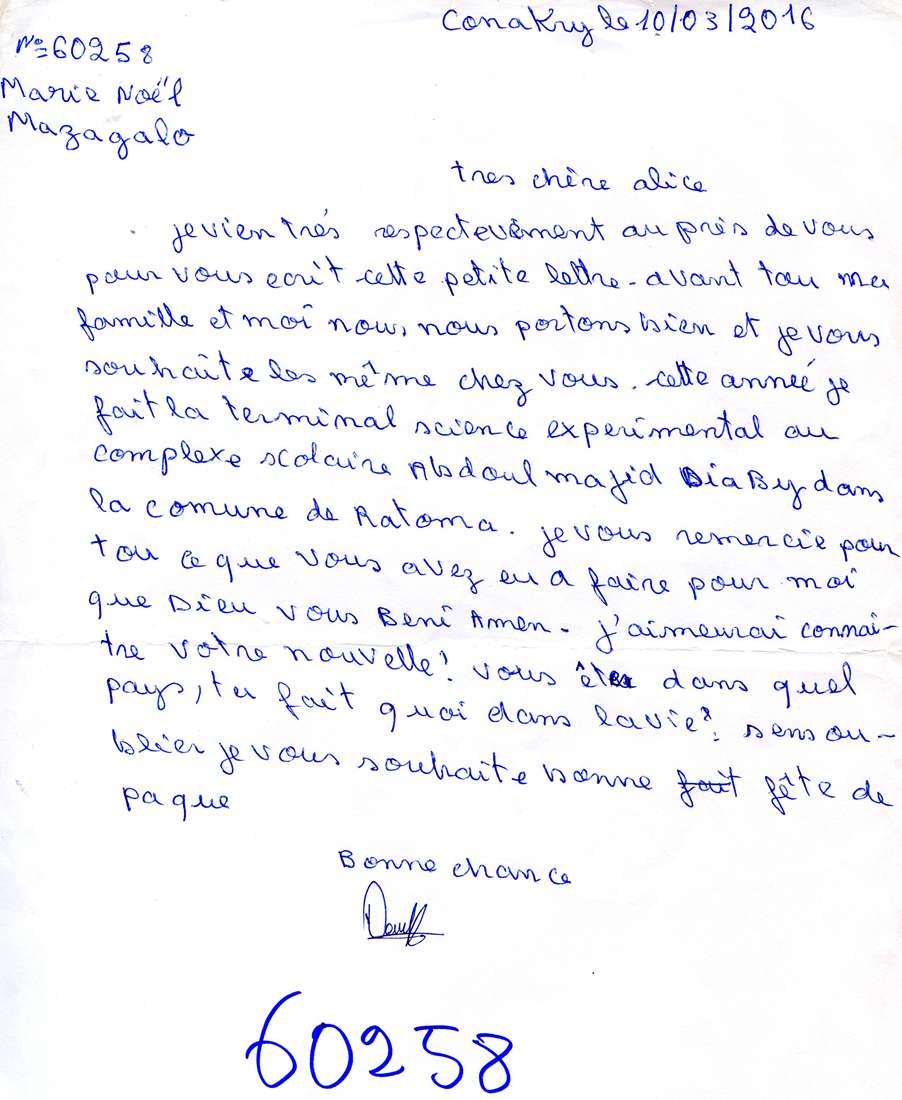 Conakry le 10/03/2016
No=60258
Marie Noël
Mazagalo
tres chère alice
je vien trés respectevêment au près de vous
pour vous ecrit cette petite lettre. avant tou ma
famille et moi nou, nous portons bien et je vous
souhaite les même chez vous. cette anneé je
fait la terminal science experimental au
complexe scolaire Abdoul majid DiaBy dans
la comune de Ratoma. je vous remercie pour
tou ce que vous avez eu a faire pour moi
que Dieu vous Beni Amen. J'aimeurai connai-
tre votre nouvelle! vous dans quel
pays, tu fait quoi dans la vie?. sens ou-
blier je vous souhaite bonne fait fête de
paque
Bonne chance
60258